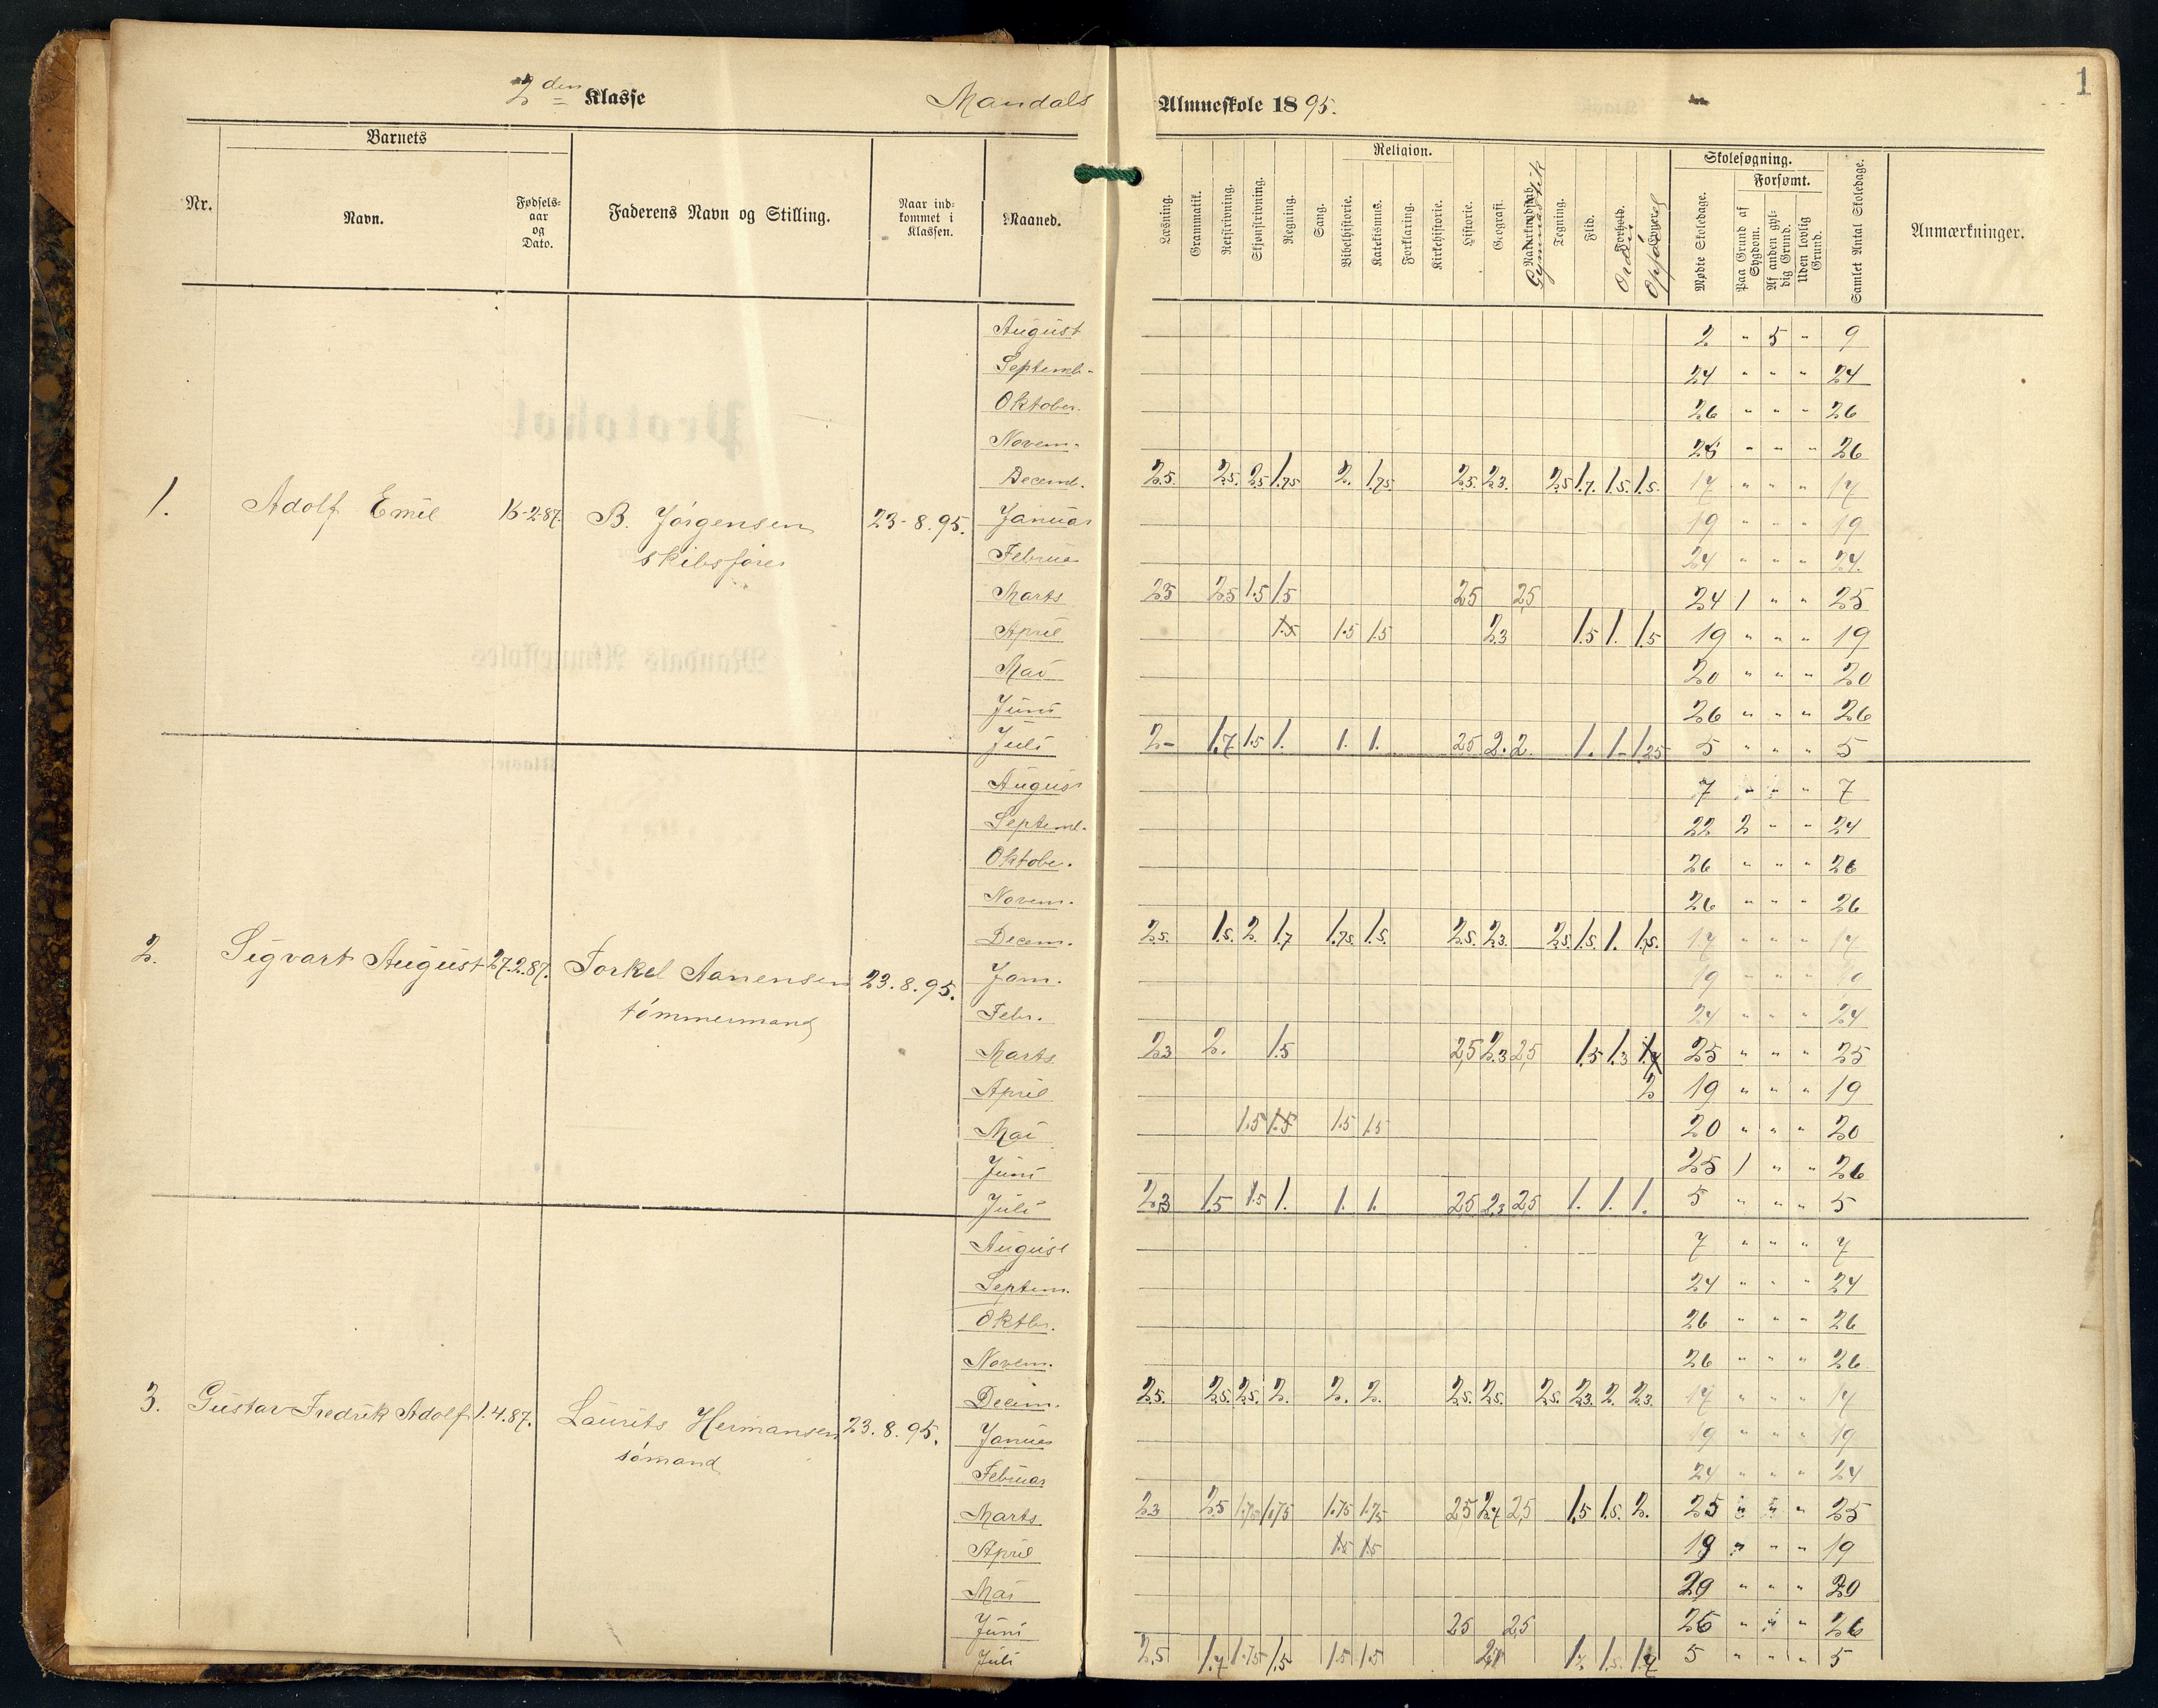 1
2den Klasse Mandals Almueskole 1895.
Barnets Religion. Skolesøgning.
Forsømt.
Nr. Navn. Fødsels-aar og Dato. Faderens Navn og Stilling. Naar ind-kommet i Klassen. Maaned. Læsning. Grammatik. Retskrivning. Skjønskrivning. Regning. Sang. Bibelhistorie. Katekismus. Forklaring. Kirkehistorie. Historie. Geografi. Gymnastik Tegning. Flid. Forhold. Orden Opførsel Mødte Skoledage. Paa Grund af Sygdom. Af anden gyl-dig Grund. Uden lovlig Grund. Samlet Antal Skoledage. Anmærkninger.
August 2 " 5 " 9
Septemb. 24 " " " 24
Oktober. 26 " " " 26
Novem. " " " 26
Decemb. 2.5. 2.5. 2.5 1.75 2. 1.75 2.5. 2.3. 2.5 1.7. 1.5. 1.5. 17 " " " 17
1. Adolf Emil B. Jørgensen 23-8.95. Januar 19 " " " 19
skibsfører Februar 24 " " " 24.
Marts 2.5 2.5 1.5 1.5 2.5 2.5 24 1 " " 25
April 1.5 1.5 1.5 2.3 1.5 1. 1.5 19 " " " 19
Mai 20 " " " 20
Juni 26 " " " 26
Juli 2- 1.7 1.5 1. 1. 1. 2.5 2. 2. 1. 1- 1.25 5 " " " 5
August 7 " " " 7
Septemb. 22 2 " " 24
Oktobe. 26 " " " 26
Novem. 26 " " " 26
Decem. 2.5. 1.5. 2. 1.7 1.75. 1.5. 2.5. 2.3. 2.5. 1.5. 1. 17 " " " 17
2. Sigvart August 27.2.87. Torkel Aanensen 23.8.95. Jan. 19 " " " 19
tømmermand Febr. 24 " " " 24
Marts 2.3 2. 1.5 2,5 2.3 2,5 1.5 1.3 25 " " " 25
April 2 19 " " " 19
Mai 1.5 1.5 1.5 1.5 20 " " " 20
Juni 25 1 " " 26
Juli 2.3 1.5 1.5 1. 1. 1. 2.5 2.3 2.5 1. 1. 1. 5 " " " 5
August 7 " " " 7
Septem. 24 " " " 24
Oktbr. 26 " " " 26
Novem. 26 " " " 26
Decem. 2.5. 2.5. 2.5. 2. 2. 2. 2.5. 2.5. 2.5. 2.3. 2. 2.3. 17 " " " 17
3. Gustav Fredrik Adolf 1.4.87. Laurits Hermansen 23.8.95. Januar 19 " " " 19
sømand Februar 24 " " " 24
Marts 2.3 2.5 1.75 1.75 1.75 1.75 2.5 2.7 2.5 1.5 1.5. 2. 25 " " " 25
April 1.5 1.5 19 " " " 19
Mai 20 " " " 20
Juni 2.5 2.5 26 " " " 26
Juli 2.5 1.7 1.75 1.5 1.5 1.5 1.5. 1.7 5 " " " 5